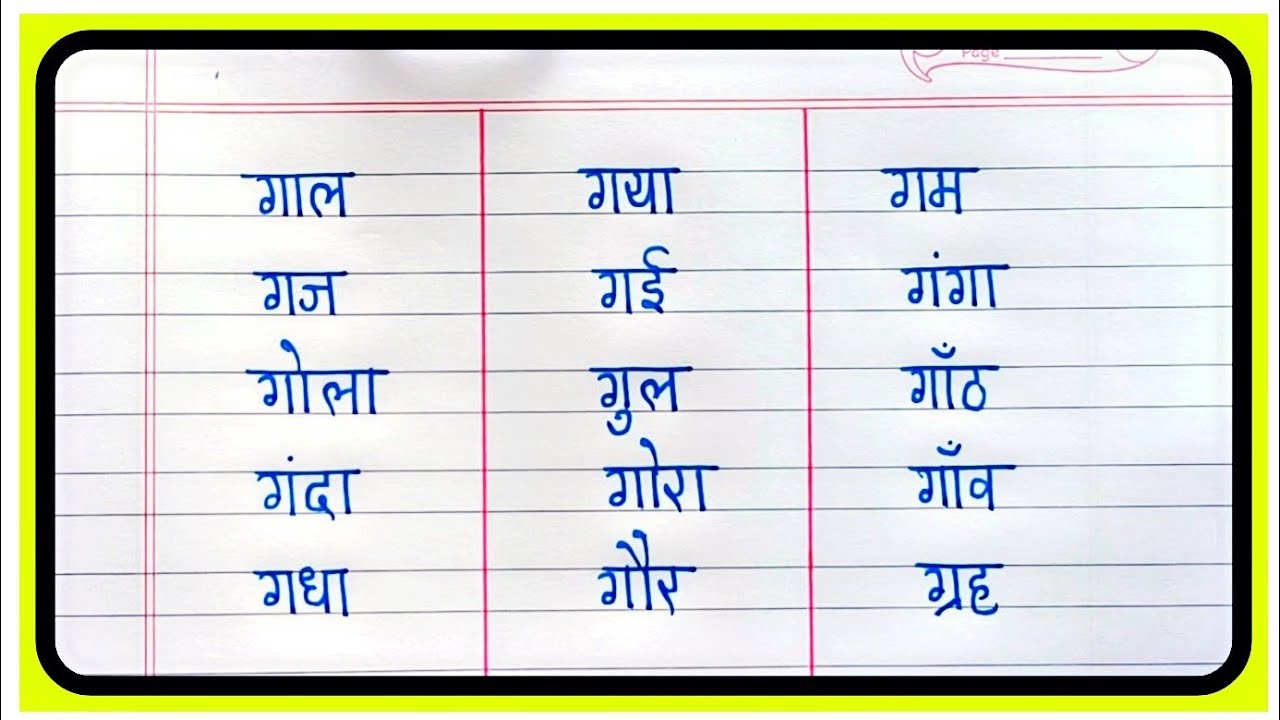 Page
गाल गया गम
गज गई गंगा
गोला गुल गाँठ
गंदा गोरा गाँव
गधा गौर ग्रह